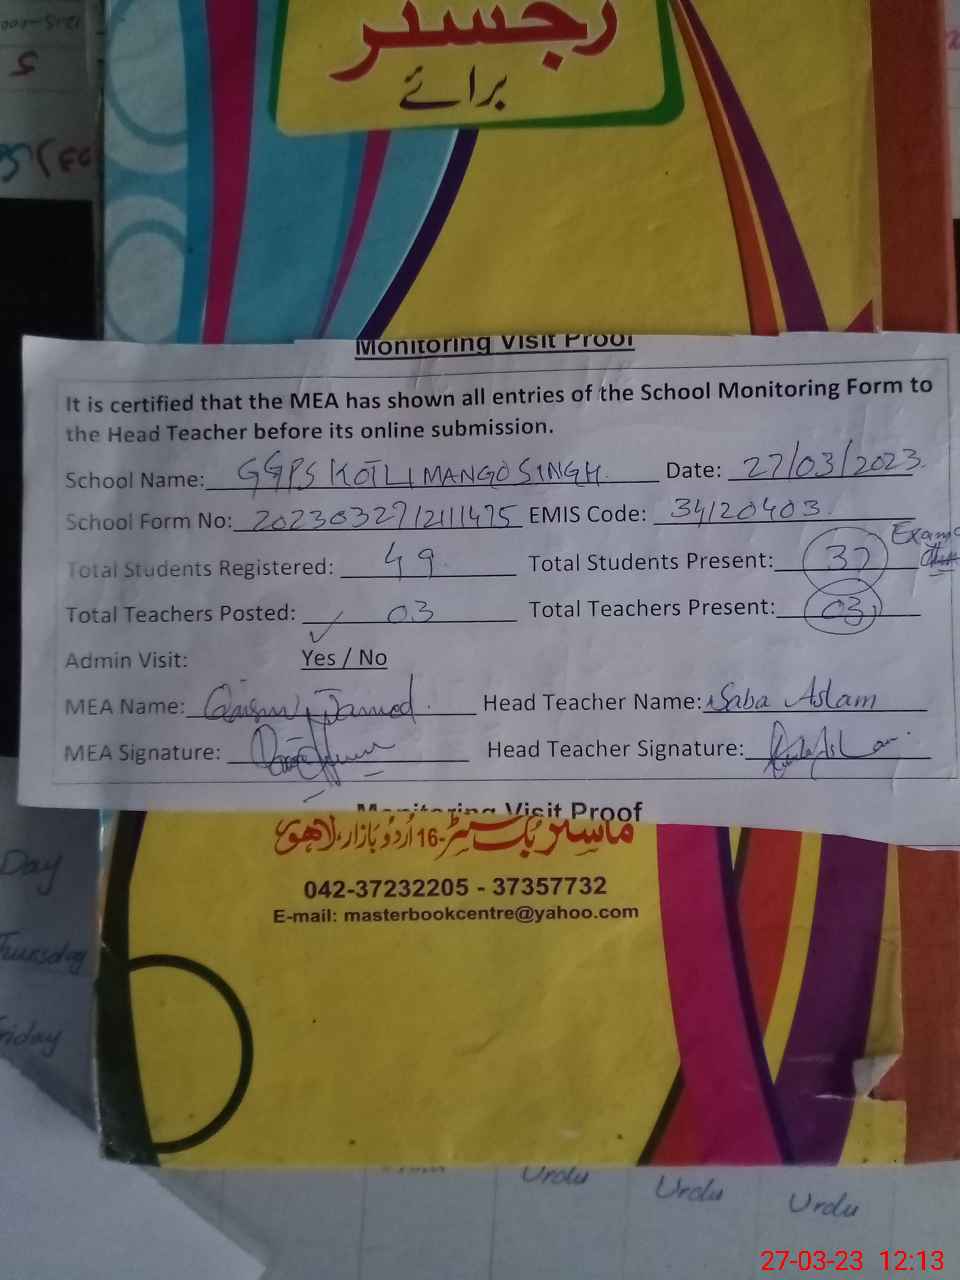 رجسٹر
برائے
Monitoring Visit Proof
It is certified that the MEA has shown all entries of the School Monitoring Form to
the Head Teacher before its online submission.
School Name: GGPS KOTLI MANGO SINGH. Date: 27/03/2023.
School Form No: 202303271211475 EMIS Code: 34120403.
Exams
Total Students Registered: 49. Total Students Present: 37
Total Teachers Posted: 03 Total Teachers Present: 03
Admin Visit: Yes / No
MEA Name: Head Teacher Name: Saba Aslam
MEA Signature: Head Teacher Signature:
Monitoring Visit Proof
ماسٹر بک سینٹر-16 اُردُو بازار، لاہور
042-37232205 - 37357732
E-mail: masterbookcentre@yahoo.com
Day
Thursday
Friday
Urdu
Urdu
Urdu
27-03-23 12:13